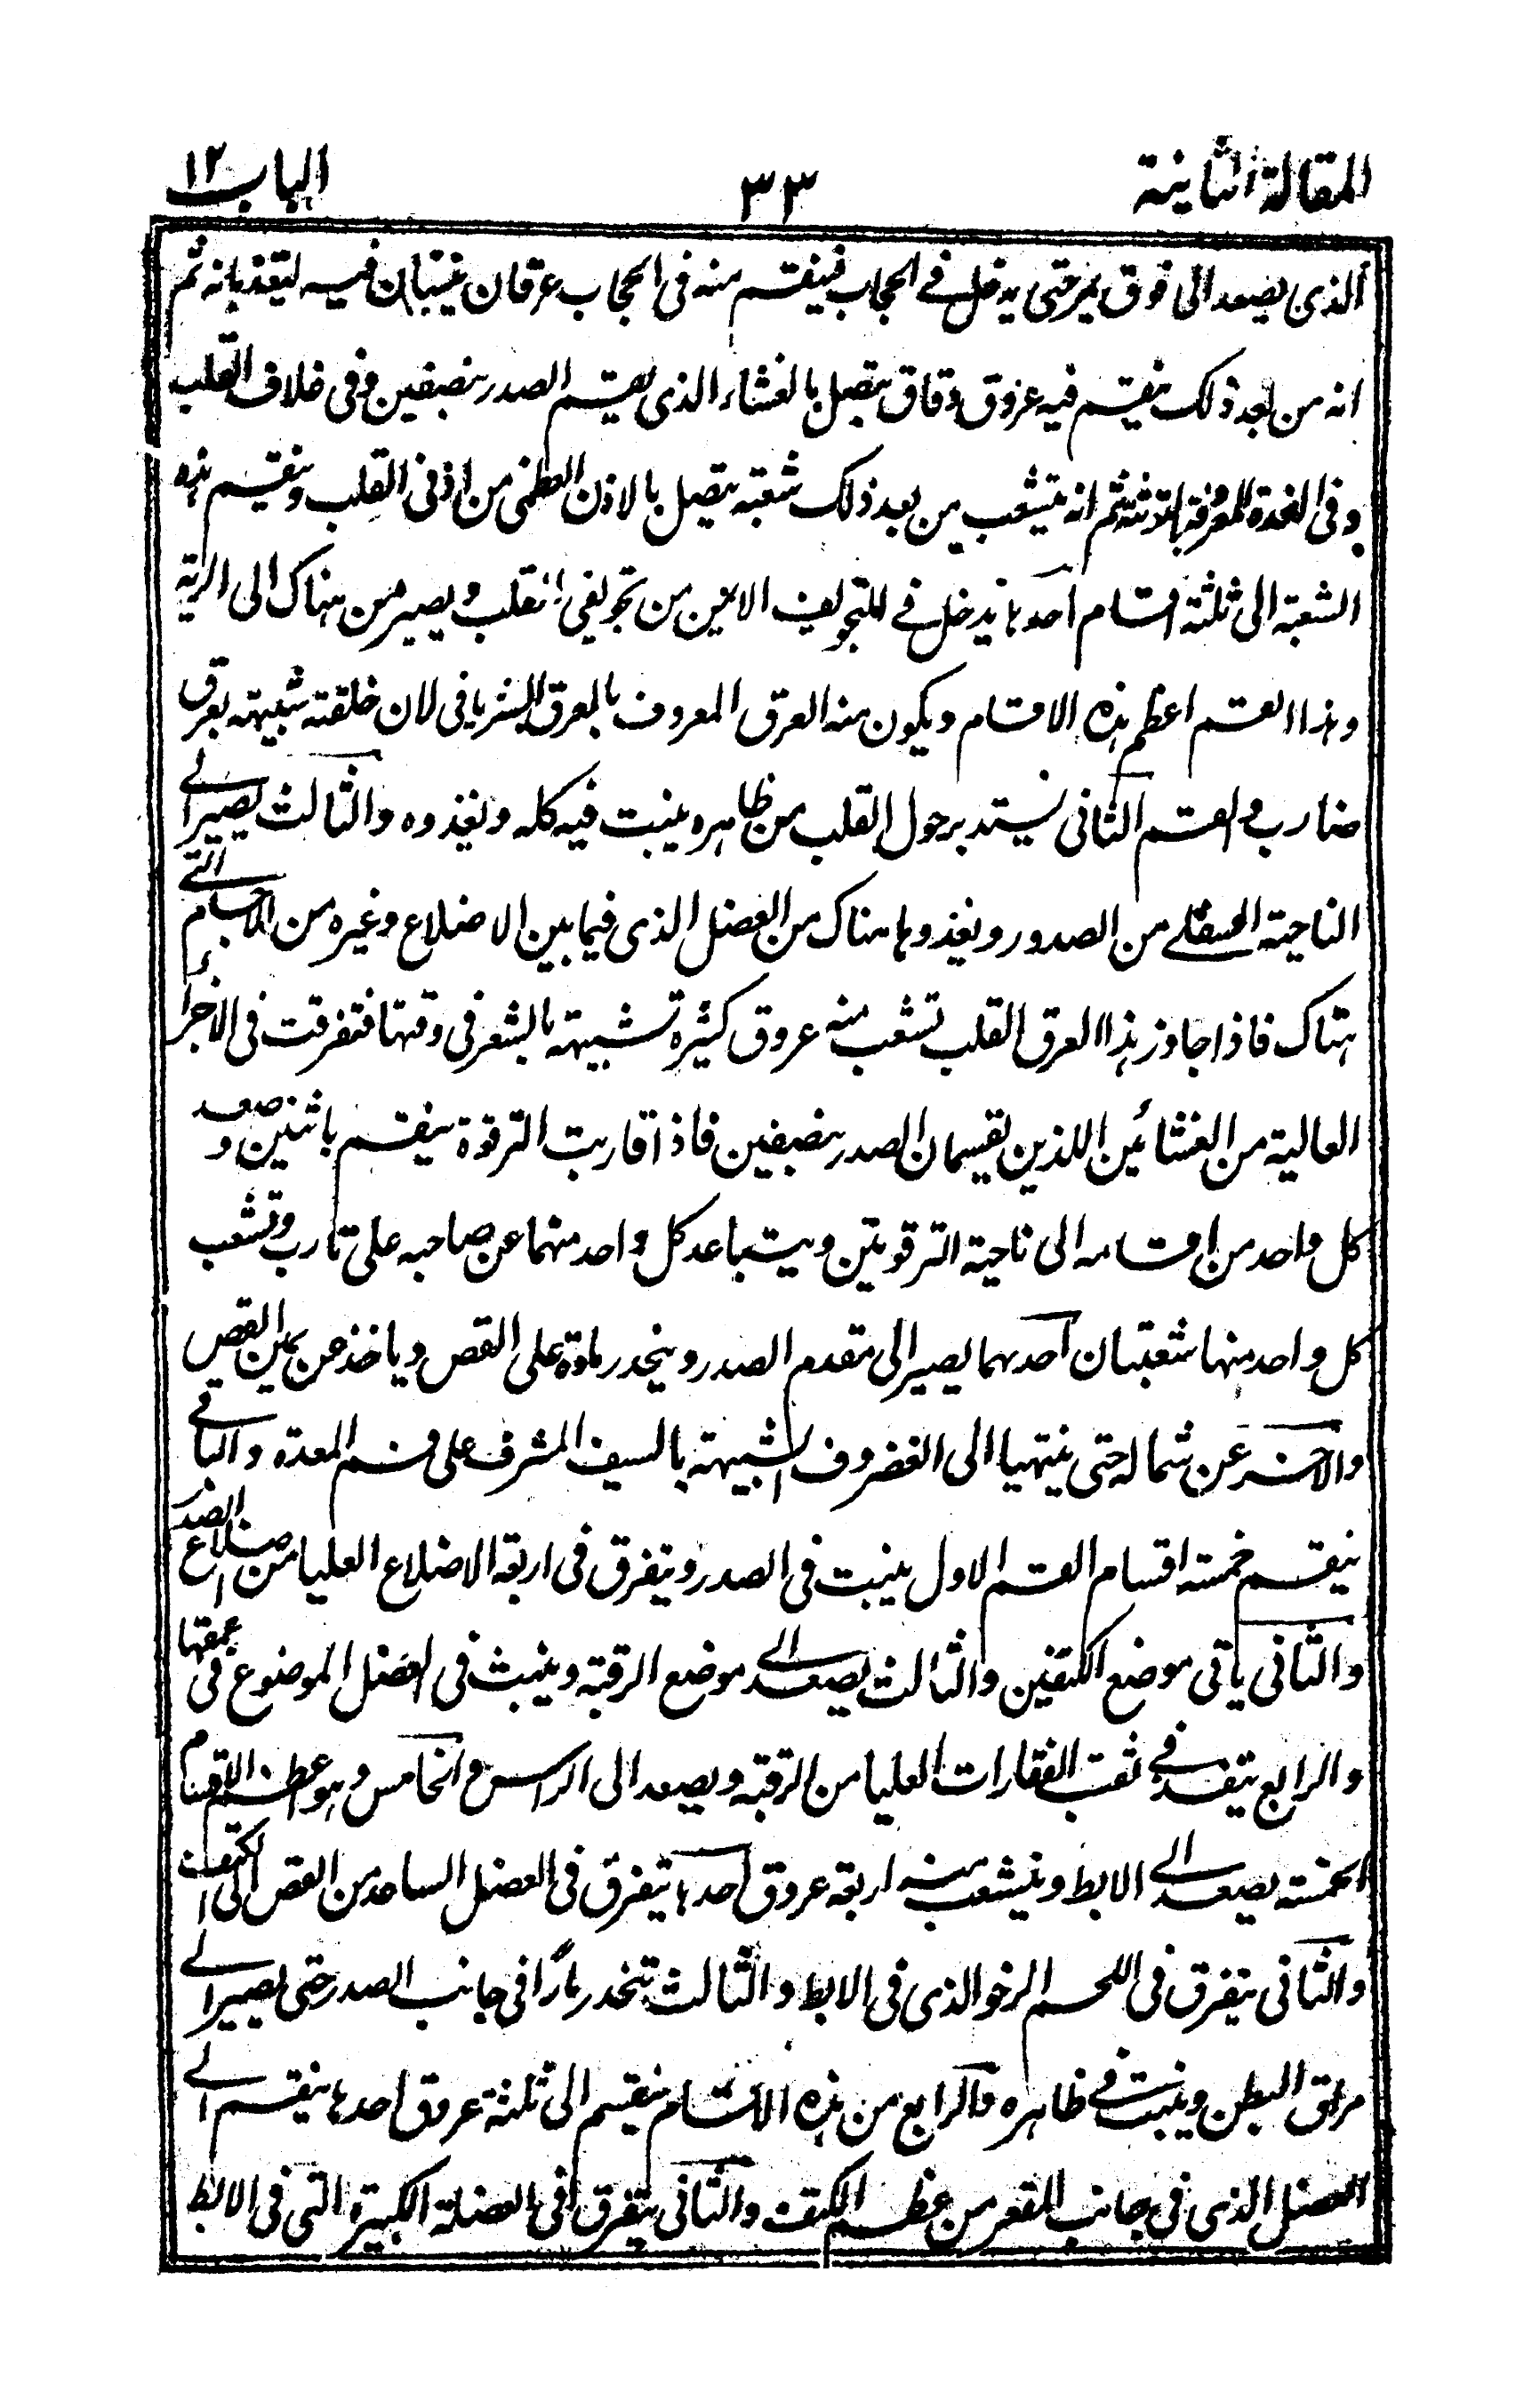 المقالة الثانية ٣٣ الباب ١٢
الذى يصعد الى فوق يمر حتى يدخل فى الحجاب فينقسم منه فى الحجاب عرقان ينبثان فيه ليتغذيانه ثم
انه من بعد ذلك ينقسم فيه عروق دقاق يتصل بالغشاء الذى يقسم الصدر بنصفين وفى غلاف القلب
وفى الغدة المعروفة بالتوثة ثم انه يتشعب من بعد ذلك شعبة يتصل بالاذن العظمى من اذنى القلب وينقسم هذه
الشعبة الى ثلثة اقسام احدها يدخل فى التجويف الايمن من تجويفى القلب ويصير من هناك الى الرية
وهذا القسم اعظم هذه الاقسام ويكون منه العرق المعروف بالعرق الشريانى لان خلقته شبيهة بعرق
ضارب والقسم الثانى يستدير حول القلب من ظاهره ينبث فيه كله ويغذوه والثالث يصير الى
الناحية السفلى من الصدر ويغذو ما هناك من العضل الذى فيما بين الاضلاع وغيره من الاجسام التى
هناك فاذا جاوز هذا العرق القلب تشعب منه عروق كثيرة شبيهة بالشعر فى دقتها فتفرقت فى الاجزاء
العالية من الغشائين اللذين يقسمان الصدر بنصفين فاذا قاربت الترقوة ينقسم باثنين وصعد
كل واحد من اقسامه الى ناحية الترقوتين ويتباعد كل واحد منهما عن صاحبه على تارب وتشعب
كل واحد منها شعبتان احدهما يصير الى مقدم الصدر وينحدر مارة على القص وياخذ عن يمين القص
والاخر عن شماله حتى ينتهيا الى الغضروف الشبيهة بالسيف المشرف على فم المعدة والباقى
ينقسم خمسة اقسام القسم الاول ينبث فى الصدر ويتفرق فى اربعة الاضلاع العليا من اضلاع الصدر
والثانى ياتى موضع الكتفين والثالث يصعد الى موضع الرقبة وينبث فى العضل الموضوع فى عمقها
والرابع ينفد فى ثقب الفقارات العليا من الرقبة ويصعد الى الراس والخامس وهو اعظم الاقسام
الخمسة يصعد الى الابط ويتشعب منه اربعة عروق احدها يتفرق فى العضل الساعد من القص الى الكتف
والثانى يتفرق فى اللحم الرخو الذى فى الابط والثالث تنحدر مارًا فى جانب الصدر حتى يصير الى
مراق البطن وينبث فى ظاهره والرابع من هذه الاقسام ينقسم الى ثلثة عروق احدها ينقسم الى
العضل الذى فى جانب المقعر من عظم الكتف والثانى يتفرق فى العضلة الكبيرة التى فى الابط